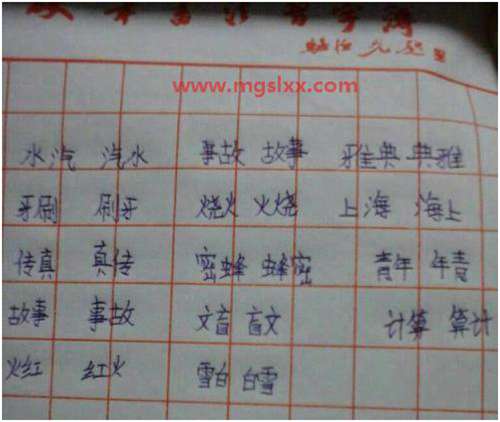 www.mgslxx.com
水汽 汽水 事故 故事 雅典 典雅
牙刷 刷牙 烧火 火烧 上海 海上
传真 真传 密蜂 蜂密 青年 年青
故事 事故 文盲 盲文 计算 算计
火红 红火 雪白 白雪